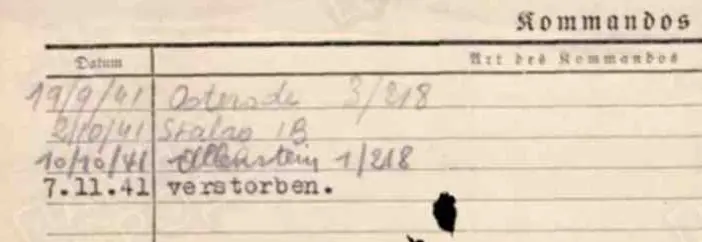 Kommandos
Datum Art des Kommandos
19/9/41 Osterode 3/218
2/10/41 Stalag IB
10/10/41 Allenstein 1/218
7.11.41 verstorben.